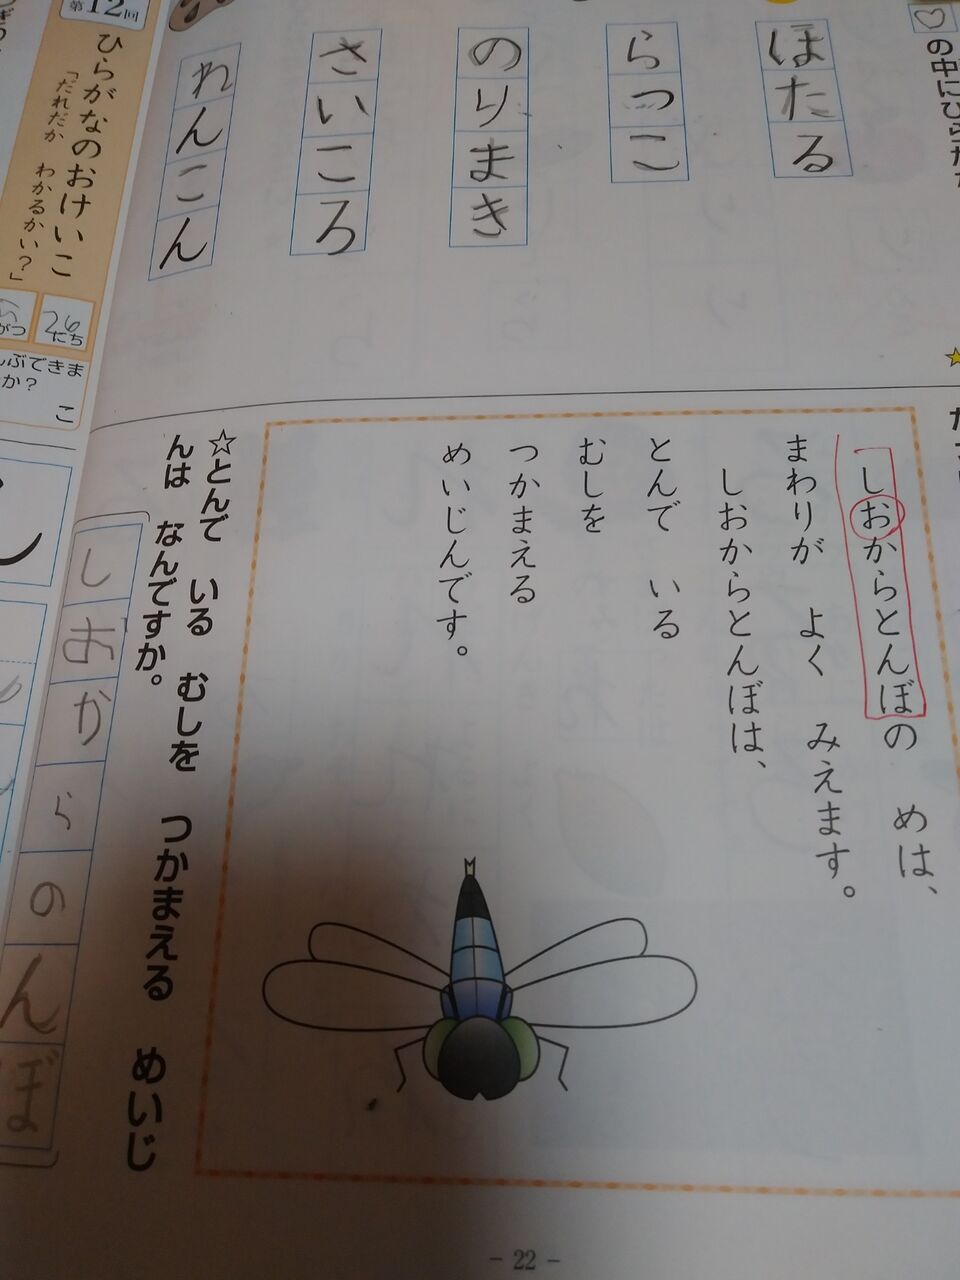 の中にひらがな
ほたる
らっこ
のりまき
さいころ
れんこん
しおからとんぼの　めは、
まわりが　よく　みえます。
しおからとんぼは、
とんで　いる
むしを
つかまえる
めいじんです。
☆とんで　いる　むしを　つかまえる　めいじ
んは　なんですか。
しおからのんぼ
第12回
ひらがなのおけいこ
「だれだか　わかるかい？」
がつ
26にち
んぶできま
か？
こ
- 22 -